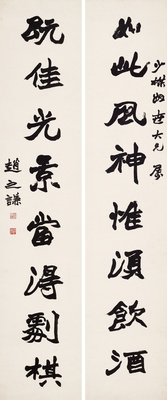 如此風神惟須飲酒
少棥姻世大兄屬
既佳光景當得劇棋
趙之謙